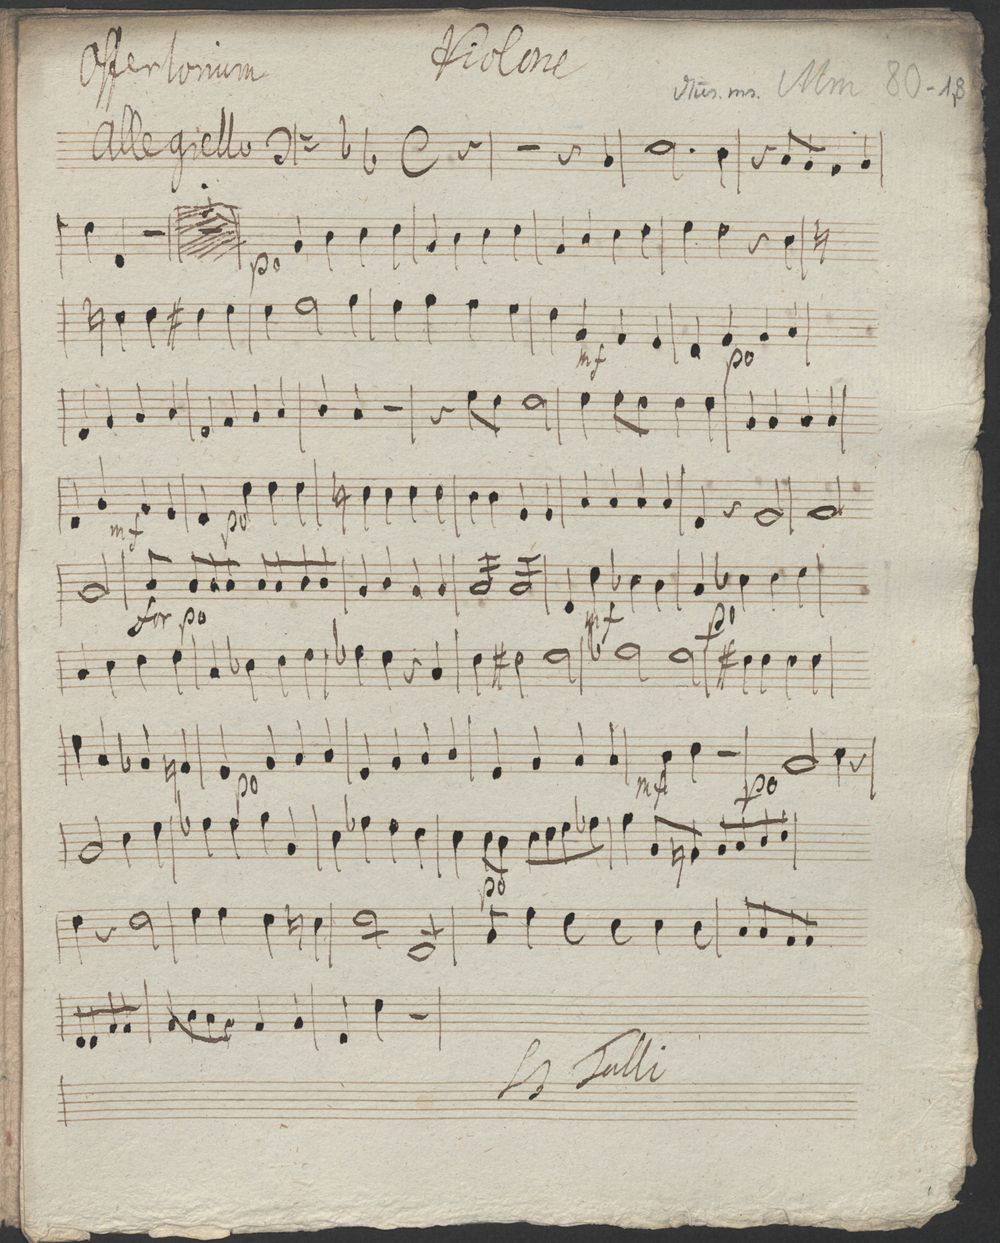 Offertorium Violone
Mus. ms. Mm 80-18
Allegretto
po
mf po
mf po
for po mf po
po mf po
po
Tutti